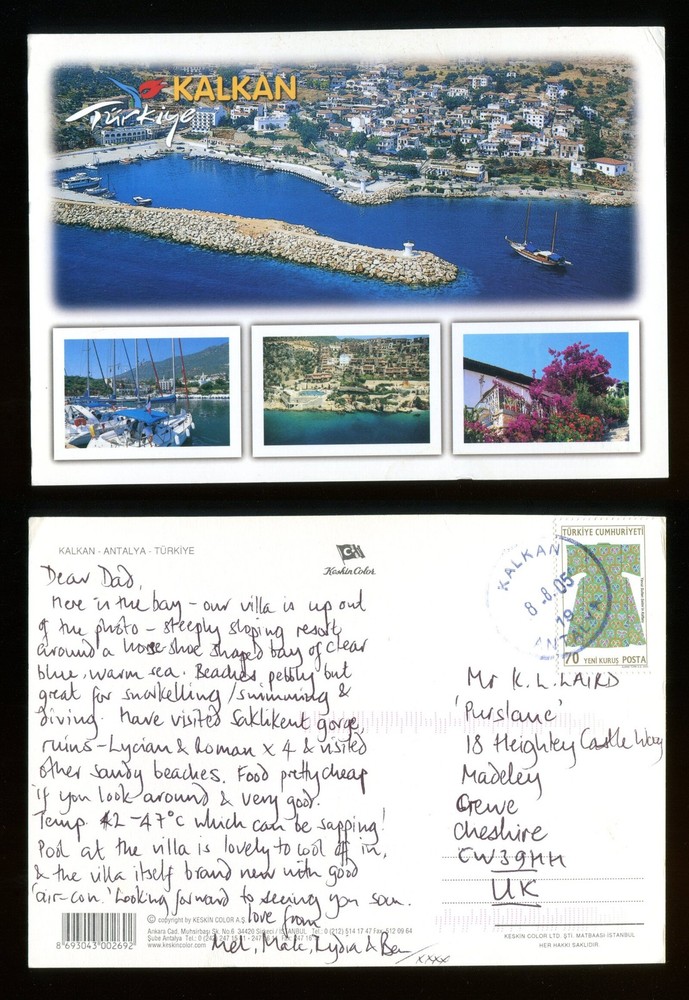 KALKAN
Türkiye
KALKAN - ANTALYA - TÜRKİYE
Keskin Color
TÜRKİYE CUMHURİYETİ
70 YENİ KURUŞ POSTA
KALKAN
8.8.05
19
ANTALYA
Dear Dad,
Here in the bay - our villa is up out
of the photo - steeply sloping resort
around a horse-shoe shaped bay of clear
blue, warm sea. Beaches pebbly but
great for snorkelling / swimming &
diving. Have visited Saklikent gorge,
ruins - Lycian & Roman x 4 & visited
other sandy beaches. Food pretty cheap
if you look around & very good.
Temp. 42-47°C which can be sapping!
Pool at the villa is lovely to cool off in,
& the villa itself brand new with good
'air-con.' Looking forward to seeing you soon.
love from
Mel, Malc, Lydia & Ben
xxxx
Mr K. L. LAIRD
'Purslane'
18 Heighley Castle Way
Madeley
Crewe
Cheshire
CW3 9HH
UK
8 693043 002692
© copyright by KESKİN COLOR A.Ş.
Ankara Cad. Muhsirbaşı Sk. No.6 34420 Sirkeci / İSTANBUL Tel.: 0 (212) 514 17 47 Fax: 512 09 64
Şube Antalya Tel.: 0 (242) 247 15
www.keskincolor.com
KESKİN COLOR LTD. ŞTİ. MATBAASI-İSTANBUL
HER HAKKI SAKLIDIR.